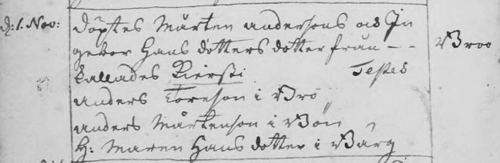 d: 1. Nov: döptes Mårten andersons och In
gebor Hans dotters dotter från - - Broo
kallades Kiersti Testes
anders Toreson i Brö
anders Mårtenson i Bön
H: Maren Hans dotter i Bärg